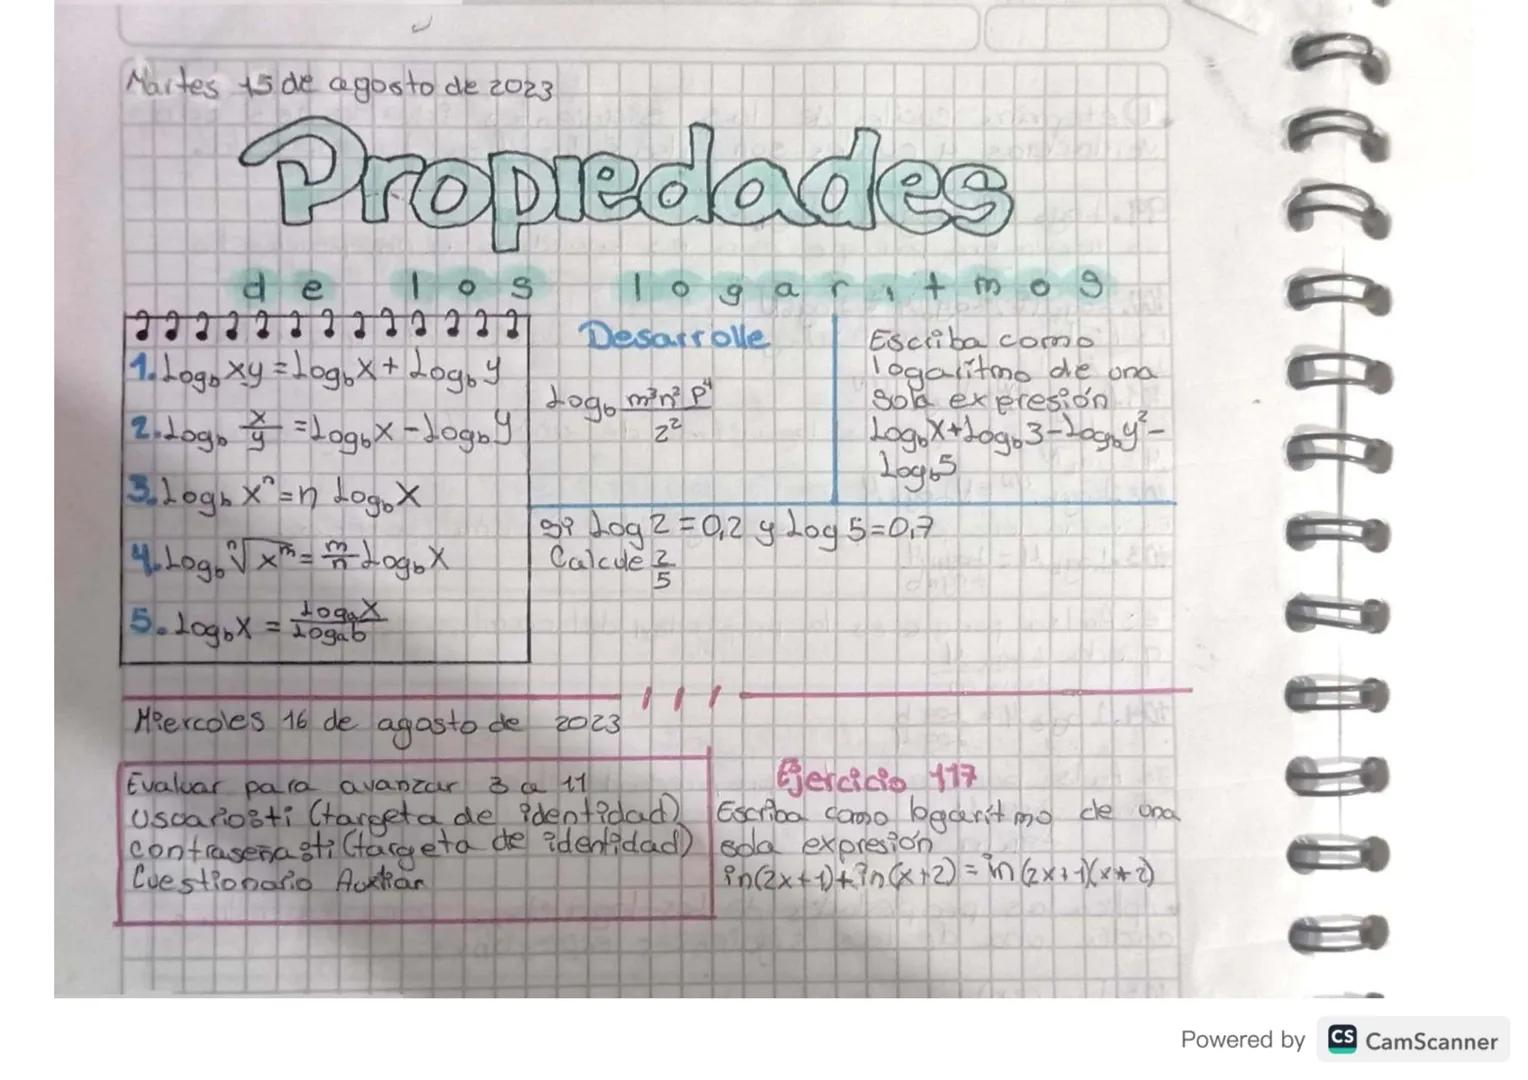 Martes 15 de agosto de 2023
Propiedades
de los logaritmos
1. Log_b xy = Log_b x + Log_b y
2. Log_b x/y = Log_b x - Log_b y
3. Log_b x^n = n Log_b x
4. Log_b ⁿ√x^m = m/n Log_b x
5. Log_b x = Log_a x / Log_a b
Desarrolle
Log_b m³n² p⁴ / z²
Escriba como
logaritmo de una
sola expresión
Log_b x + Log_b 3 - Log_b y² -
Log_b 5
si Log 2 = 0,2 y Log 5 = 0,7
Calcule 2/5
Miercoles 16 de agosto de 2023
Evaluar para avanzar 3 a 11
Usuario: ti (targeta de identidad)
contraseña: ti (targeta de identidad)
Cuestionario Auxiliar
Ejercicio 117
Escriba como logaritmo de una
sola expresión
in(2x+1)+in(x+2) = in(2x+1)(x+2)
Powered by CS CamScanner